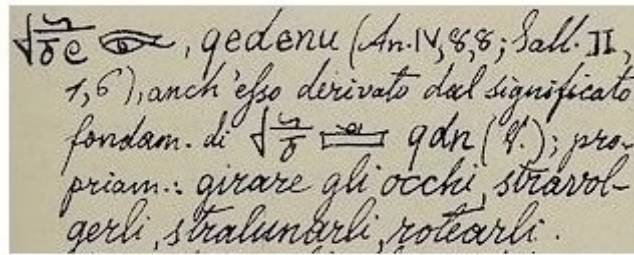 , qedenu (An. IV, 8, 8; Sall. II,
1, 6), anch'esso derivato dal significato
fondam. di qdn (V.); pro-
priam.: girare gli occhi, stravol-
gerli, stralunarli, rotearli.